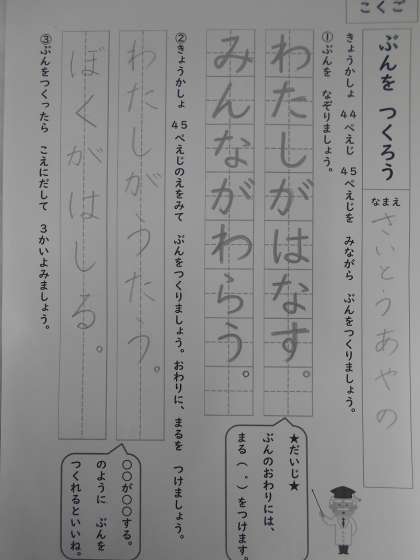 こくご
ぶんを つくろう
なまえ さいとう あやの
きょうかしょ 44ぺえじ 45ぺえじを みながら ぶんをつくりましょう。
①ぶんを なぞりましょう。
わたしがはなす。
みんながわらう。
★だいじ★
ぶんのおわりには、
まる(。)をつけます。
②きょうかしょ 45ぺえじのえをみて ぶんをつくりましょう。おわりに、まるを つけましょう。
わたしがうたう。
ぼくがはしる。
○○が○○する。
のように ぶんを
つくれるといいね。
③ぶんをつくったら こえにだして 3かいよみましょう。